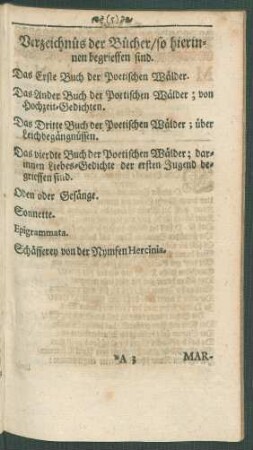 (5)
Verzeichnüs der Bücher/so hierin-
nen begrieffen sind.
Das Erste Buch der Poetischen Wälder.
Das Ander Buch der Poetischen Wälder; von
Hochzeit-Gedichten.
Das Dritte Buch der Poetischen Wälder; über
Leichbegängnüssen.
Das vierdte Buch der Poetischen Wälder; dar-
innen Liebes-Gedichte der ersten Jugend be-
grieffen sind.
Oden oder Gesänge.
Sonnette.
Epigrammata.
Schäfferey von der Nymfen Hercinia.
A 3 MAR-